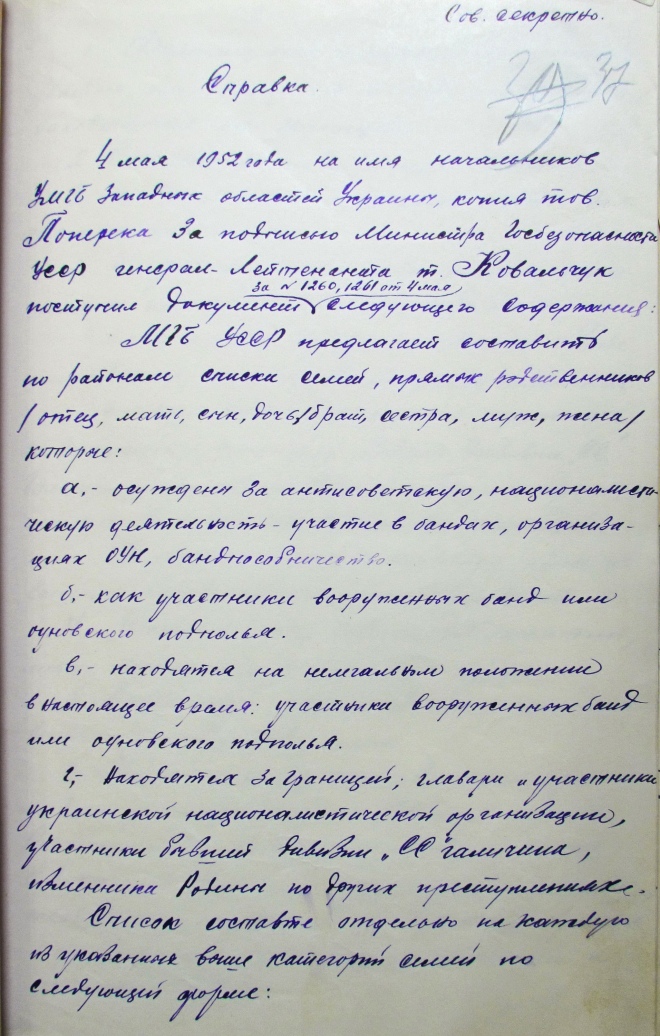 Сов. секретно.
37
Справка.
4 мая 1952 года на имя начальников
УМГБ Западных областей Украины, копия тов.
Поперека за подписью Министра Госбезопасности
УССР генерал-Лейтенаната т. Ковальчук
за № 1260, 1261 от 4 мая
поступил документ следующего содержания:
МГБ УССР предлагает составить
по районам списки семей, прямых родственников
/отец, мать, сын, дочь, брат, сестра, муж, жена/
которые:
а,- осуждены за антисоветскую, националисти-
ческую деятельность - участие в бандах, организа-
циях ОУН, бандпособничество.
б,- как участники вооруженных банд или
оуновского подполья.
в,- находятся на нелегальном положении
в настоящее время: участники вооруженных банд
или оуновского подполья.
г,- Находятся за границей; главари и участники
украинской националистической организации,
участники бывшей дивизии „СС" галичина,
изменника Родины по других преступлениях.
Список составте отдельно на каждую
из указанных выше категорий семей по
следующей форме: